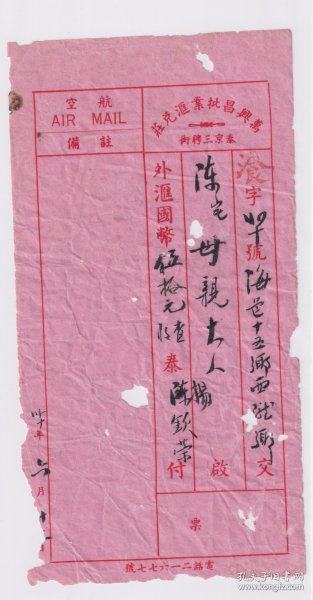 萬興昌批業滙兌莊
泰京三聘街
字 號海邑十五鄉西隴鄉交
陈宅母親大人 啟
外滙國幣伍拾元 查收 泰 陳欽荣 付
航空
AIR MAIL
備註
年六月十
票
電話二一六七七號
孔夫子旧书网